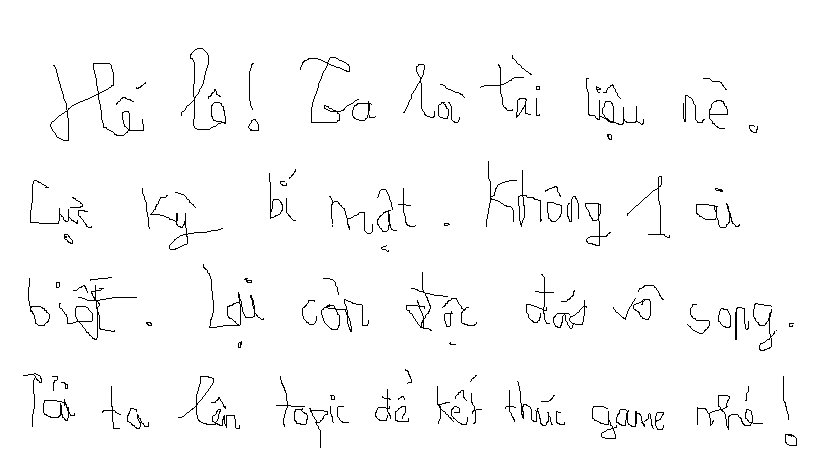 Hế lô! Ta là tài liệu nè.
Cực kỳ bí mật. Không 1 ai
biết. Lại còn độc đáo vô song.
Tải ta lên topic để kết thúc game nhé!